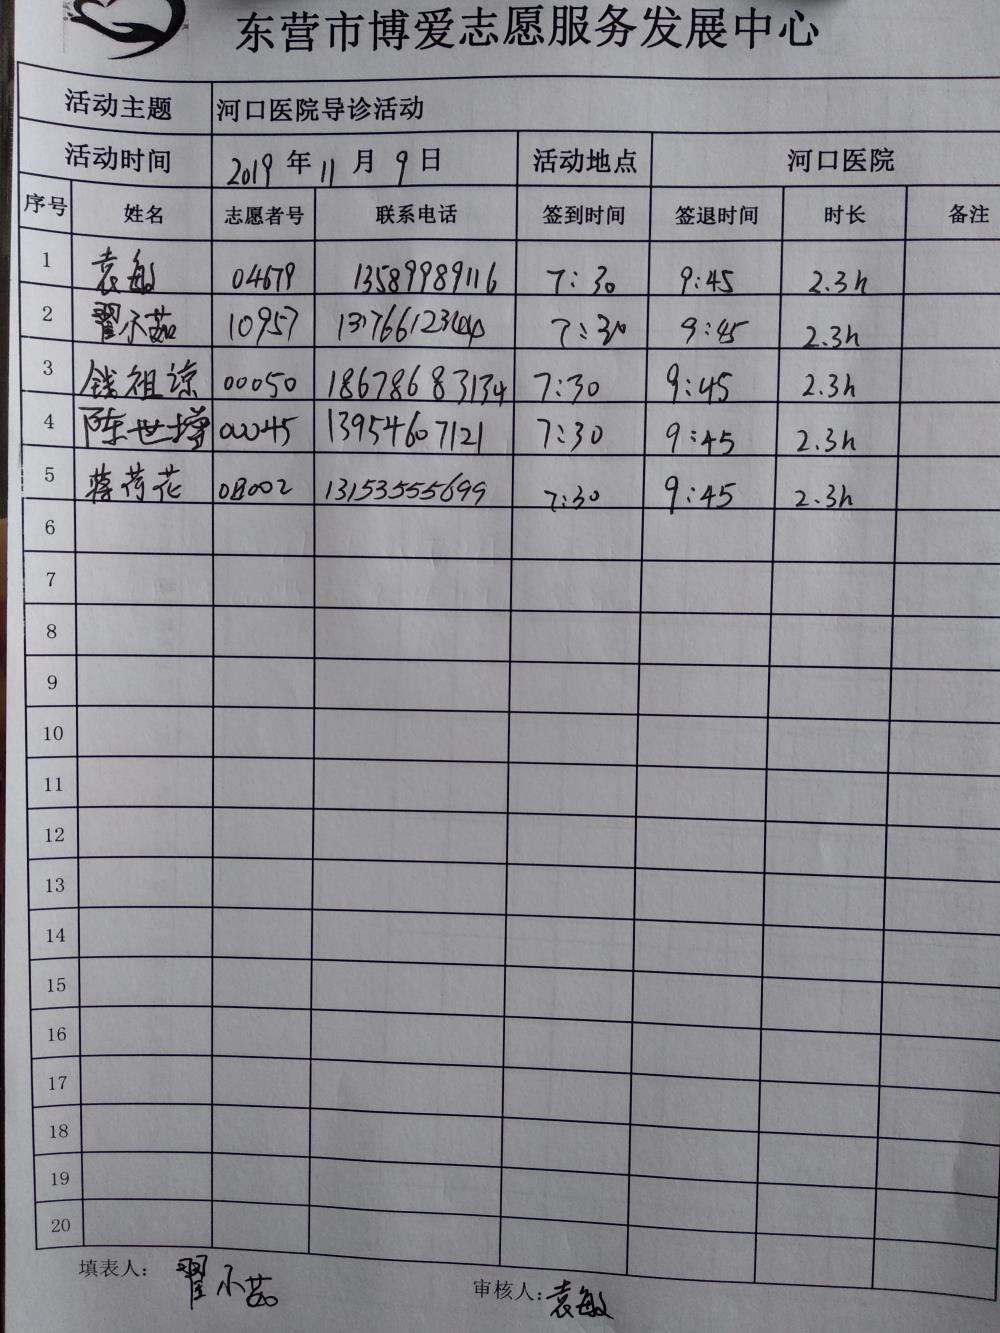 东营市博爱志愿服务发展中心
活动主题 河口医院导诊活动
活动时间 2019 年 11 月 9 日 活动地点 河口医院
序号 姓名 志愿者号 联系电话 签到时间 签退时间 时长 备注
1 袁敏 04679 13589989116 7:30 9:45 2.3h
2 翟小茹 10957 7:30 9:45 2.3h
3 钱祖谅 00050 18678683134 7:30 9:45 2.3h
4 陈世增 00045 13954607121 7:30 9:45 2.3h
5 蒋荷花 13153555699 7:30 9:45 2.3h
6
7
8
9
10
11
12
13
14
15
16
17
18
19
20
填表人： 翟小茹 审核人： 袁敏